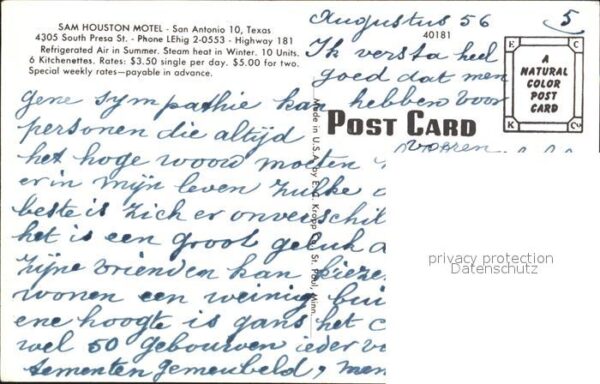 SAM HOUSTON MOTEL - San Antonio 10, Texas
4305 South Presa St. - Phone LEhig 2-0553 - Highway 181
Refrigerated Air in Summer. Steam heat in Winter. 10 Units.
6 Kitchenettes. Rates: $3.50 single per day. $5.00 for two.
Special weekly rates—payable in advance.
40181
E C
A
NATURAL
COLOR
POST
CARD
K Co
Made in U.S.A. by E. C. Kropp Co., St. Paul, Minn.
POST CARD
Augustus 56 5
Ik versta heel
goed dat men
gene sympathie kan hebben voor
personen die altijd voeren
het hoge woord moeten
er in mijn leven zulke
beste is zich er onverschil
het is een groot geluk
zijne vrienden kan kieze
wonen een weinig bui
ene hoogte is gans het
wel 50 gebouwen ieder
tementen gemeubeld, men
privacy protection
Datenschutz